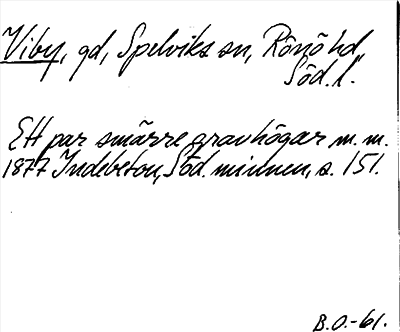 Viby, gd, Spelviks sn, Rönö hd,
Söd. l.
Ett par smärre gravhögar m. m.
1877 Indebetou, Söd. minnen, s. 151.
B.O.-61.